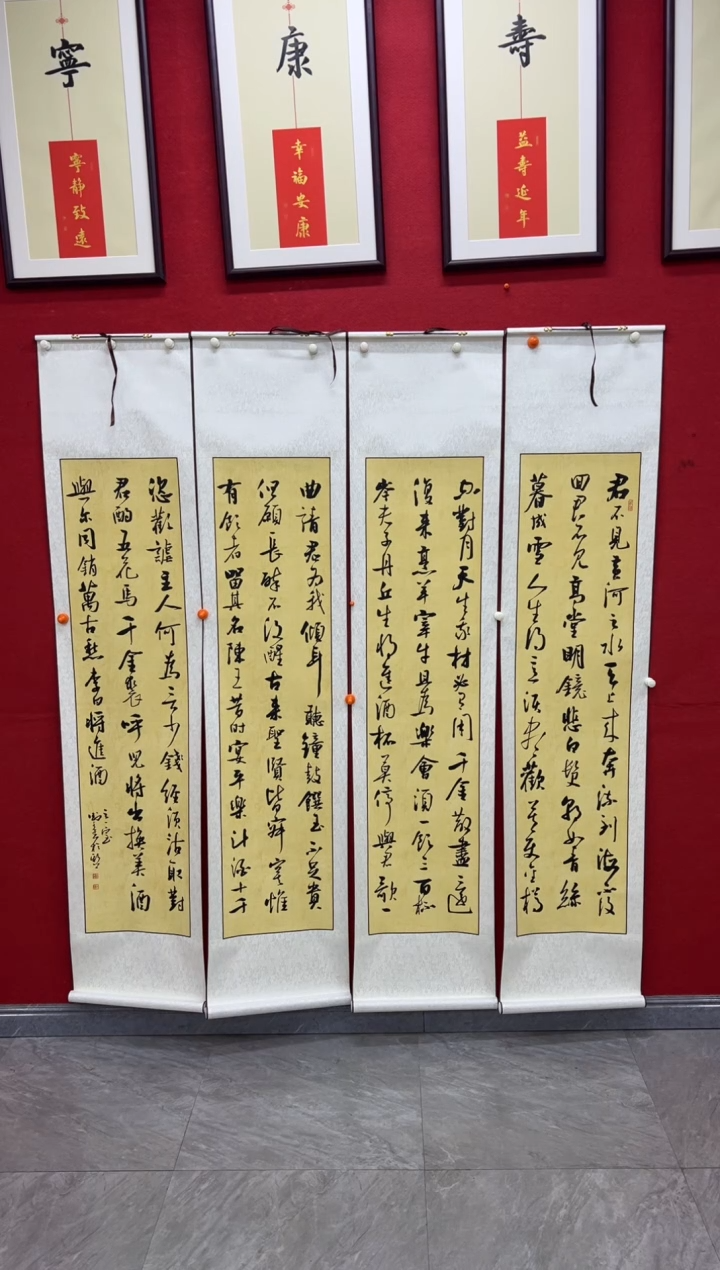 寧
寧靜致遠
康
幸福安康
壽
益壽延年
君不見黃河之水天上來奔流到海不復
回君不見高堂明鏡悲白髮朝如青絲
暮成雪人生得意須盡歡莫使金樽
空對月天生我材必有用千金散盡還
復來烹羊宰牛且爲樂會須一飲三百杯
岑夫子丹丘生將進酒杯莫停與君歌一
曲請君爲我傾耳聽鐘鼓饌玉不足貴
但願長醉不復醒古來聖賢皆寂寞惟
有飲者留其名陳王昔時宴平樂斗酒十千
恣歡謔主人何爲言少錢徑須沽取對
君酌五花馬千金裘呼兒將出換美酒
與爾同銷萬古愁李白將進酒